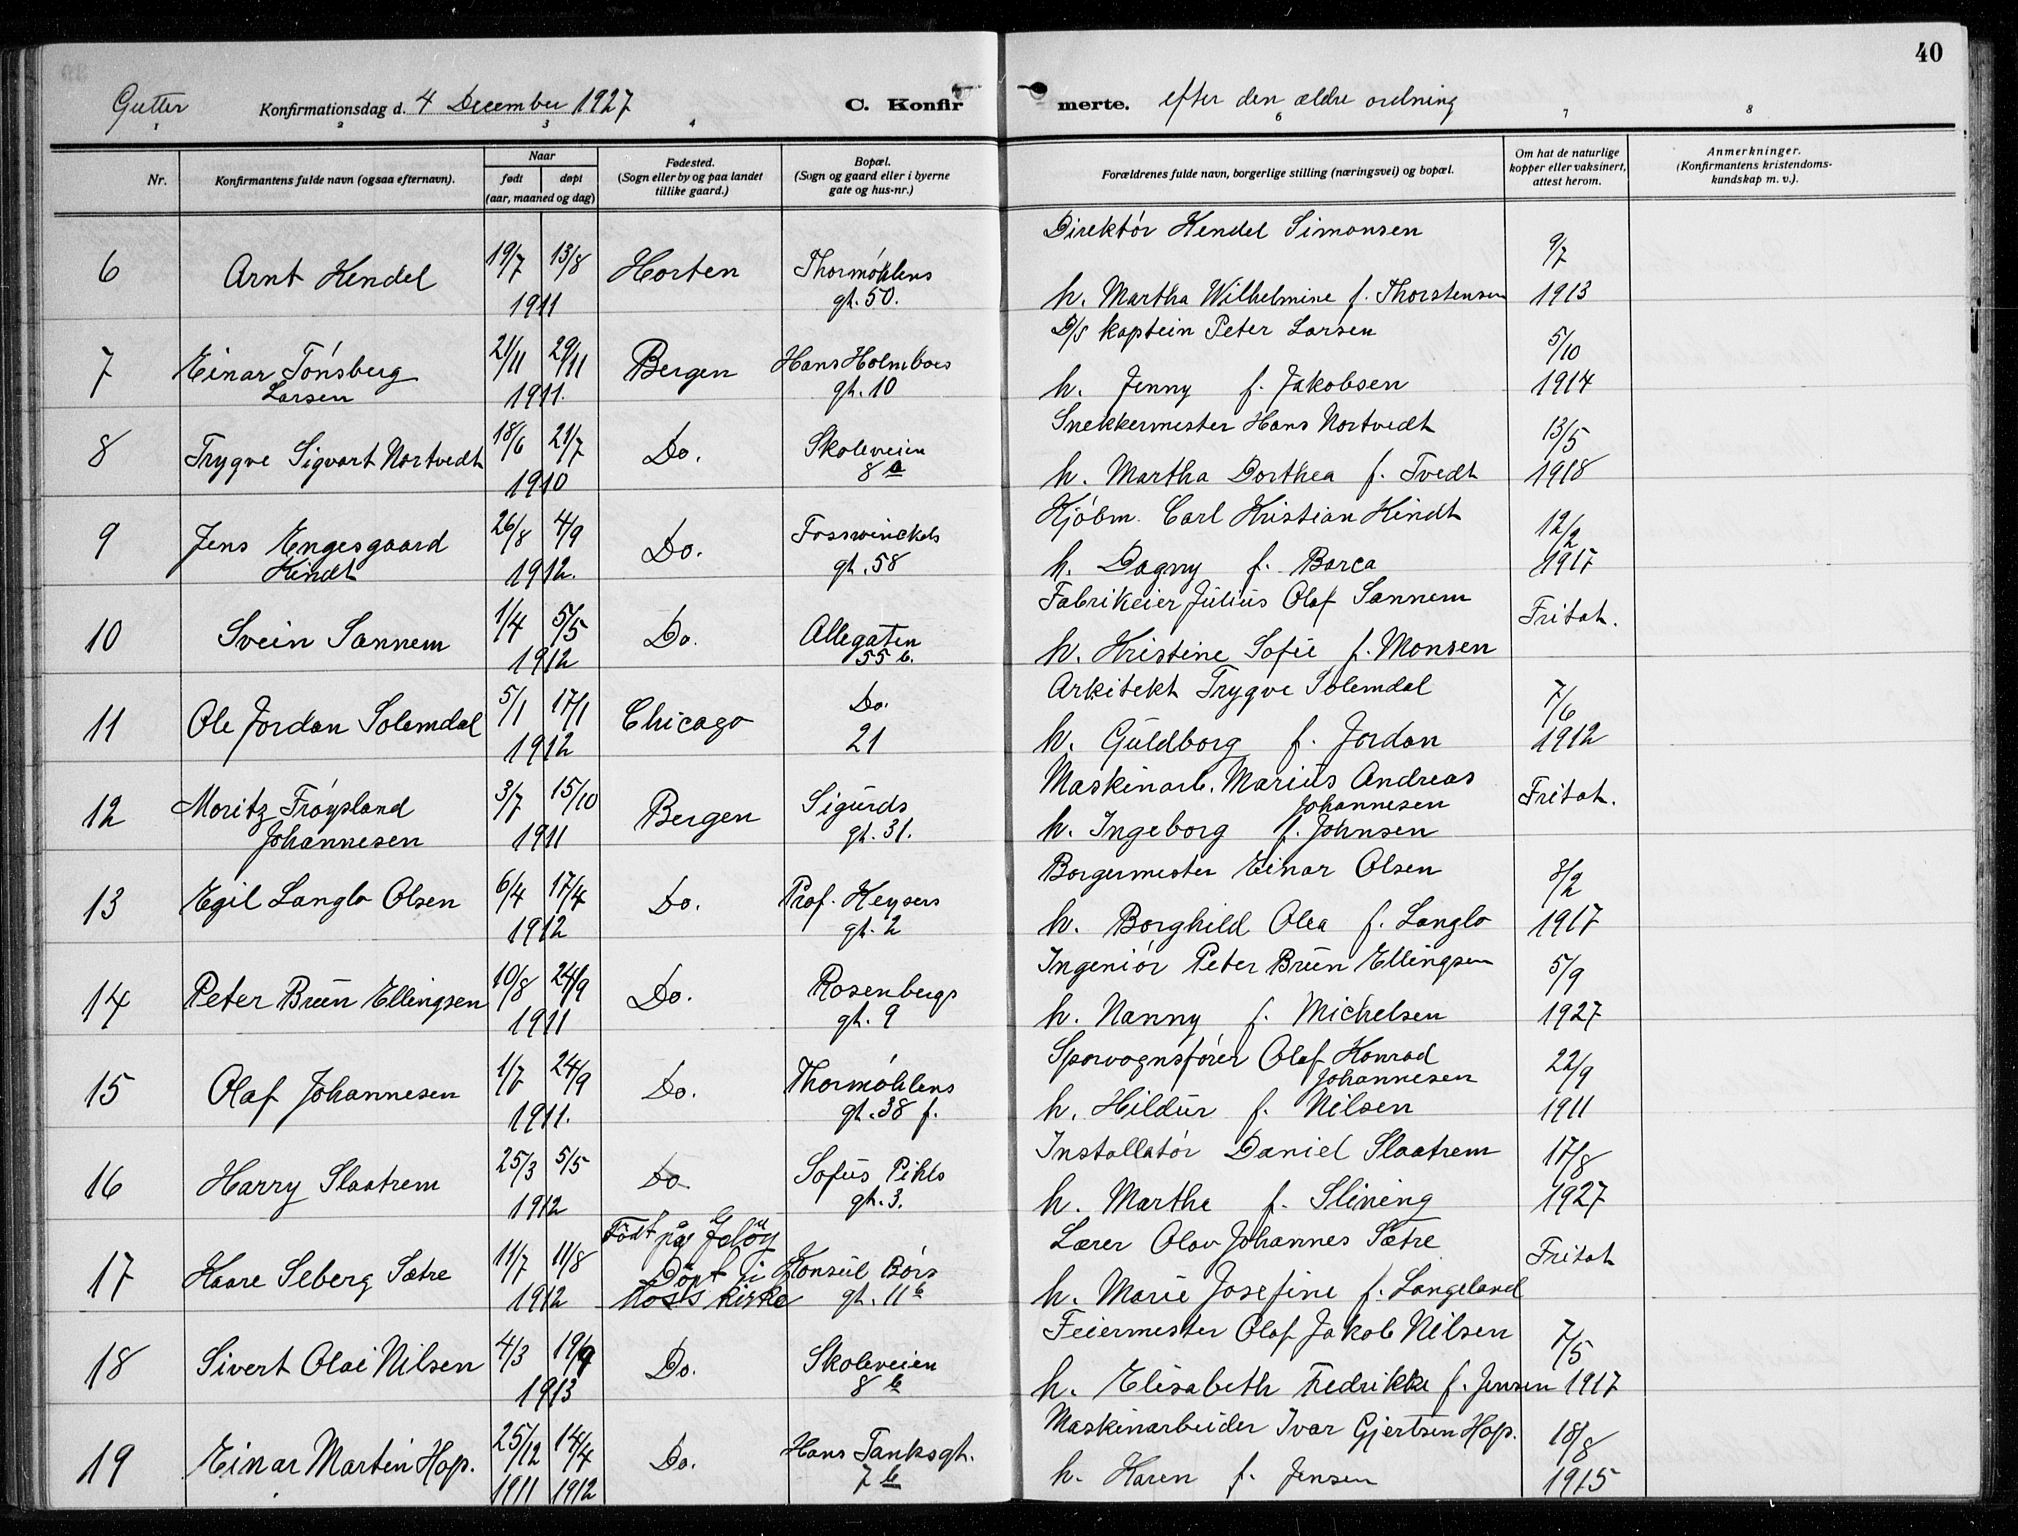 40
Gutter Konfirmationsdag d. 4 December 1927 C. Konfirmerte. efter den ældre ordning
1 2 3 4 6 7 8
Nr.
Konfirmantens fulde navn (ogsaa efternavn).
Naar
født døpt
(aar, maaned og dag)
Fødested.
(Sogn eller by og paa landet
tillike gaard.)
Bopæl.
(Sogn og gaard eller i byerne
gate og hus-nr.)
Forældrenes fulde navn, borgerlige stilling (næringsvei) og bopæl.
Om hat de naturlige
kopper eller vaksinert,
attest herom.
Anmerkninger.
(Konfirmantens kristendoms-
kundskap m. v.).
Direktór Hendel Simonsen
6 Arnt Hendel 19/7 13/8 Horten Thormóhlens 9/7
1911 gt. 50. h. Martha Wilhelmine f. Thorstensen 1913
D/S kaptein Peter Larsen
7 Einar Tónsberg 21/11 29/11 Bergen Hans Holmboes 5/10
Larsen 1911. gt. 10 h. Jenny f. Jakobsen 1914
Snekkermester Hans Nortvedt
8 Trygve Sigvart Nortvedt 18/6 21/7 Do. Skoleveien 13/5
1910 8 a h. Martha Dorthea f. Tvedt 1918
Kjóbm. Carl Kristian Kindt
9 Jens Engesgaard 26/8 4/9 Do. Fosswinckels 12/2
Kindt 1912. gt. 58 h. Dagny f. Barca 1917
Fabrikeier Julius Olaf Sannem
10 Svein Sannem 1/4 5/5 Do. Allegaten Fritat.
1912 55 b. h. Kristine Sofie f. Monsen
Arkitekt Trygve Solemdal
11 Ole Jordan Solemdal 5/1 17/1 Chicago Do. 7/6
1912 21 h. Guldborg f. Jordan 1912
Maskinarb. Marius Andreas
Johannesen
12 Moritz Tróysland 3/7 15/10 Bergen Sigurds Fritat.
Johannesen 1911 gt. 31. h. Ingeborg f. Johnsen
Borgermester Einar Olsen
13 Egil Langlo Olsen 6/4 17/4 Do. Prof. Keysers 3/2
1912 gt. 2 h. Borghild Olea f. Langlo 1917
Ingeniór Peter Bruun Ellingsen
14 Peter Bruun Ellingsen 10/8 24/9 Do. Rosenbergs 5/9
1911 gt. 9 h. Nanny f. Michelsen 1927
Sporvognsfórer Olaf Konrad
Johannesen
15 Olaf Johannesen 24/9 Do. Thormóhlens 22/9
1911. gt. 38 f. h. Hildur f. Nilsen 1911
Installatór Daniel Slaatrem
16 Harry Slaatrem 25/3 5/5 Do. Sofus Pihls 17/8
1912 gt. 3. h. Marthe f. Slining 1927
Lærer Olav Johannes Sætre
17 Kaare Seberg Sætre 11/7 11/8 Födt på Jelöy Konsul Börs Fritat
Döpt i
1912 Moss kirke gt. 11 b h. Marie Josefine f. Langeland
Feiermester Olaf Jakob Nilsen
18 Sivert Olai Nilsen 4/3 19/9 Do. Skoleveien 7/5
1913 8 b h. Elisabeth Fredrikke f. Jensen 1917
Maskinarbeider Ivar Gjertsen Hop.
19 Einar Martin Hop. 25/12 14/4 Do. Hans Tanksgt. 18/8
1911 1912 7 b h. Karen f. Jensen 1915